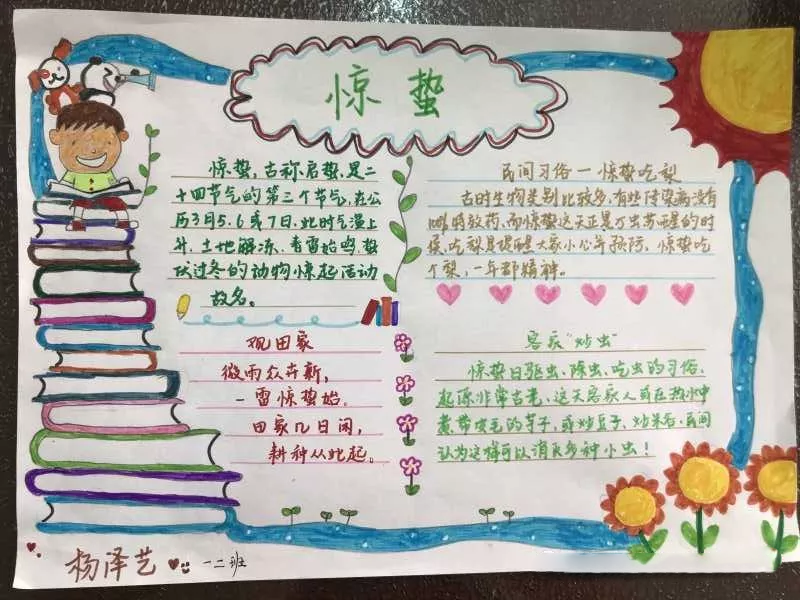 惊蛰
惊蛰,古称启蛰,是二
十四节气的第三个节气,在公
历3月5.6或7日,此时气温上
升、土地解冻、春雷始鸣,蛰
伏过冬的动物惊起活动
故名。
观田家
微雨众卉新,
一雷惊蛰始。
田家几日闲,
耕种从此起。
民间习俗一惊蛰吃梨
古时生物类别比较多,有些传染病没有
特效药,而惊蛰这天正是万虫苏醒的时
候,吃梨是提醒大家小心并预防、惊蛰吃
个梨,一年都精神。
客家"炒虫"
惊蛰日驱虫、除虫、吃虫的习俗,
起源非常古老,这天客家人或在热水中
煮带皮毛的芋子,或炒豆子、炒米谷,民间
认为这样可以消灭多种小虫!
杨泽艺 一二班